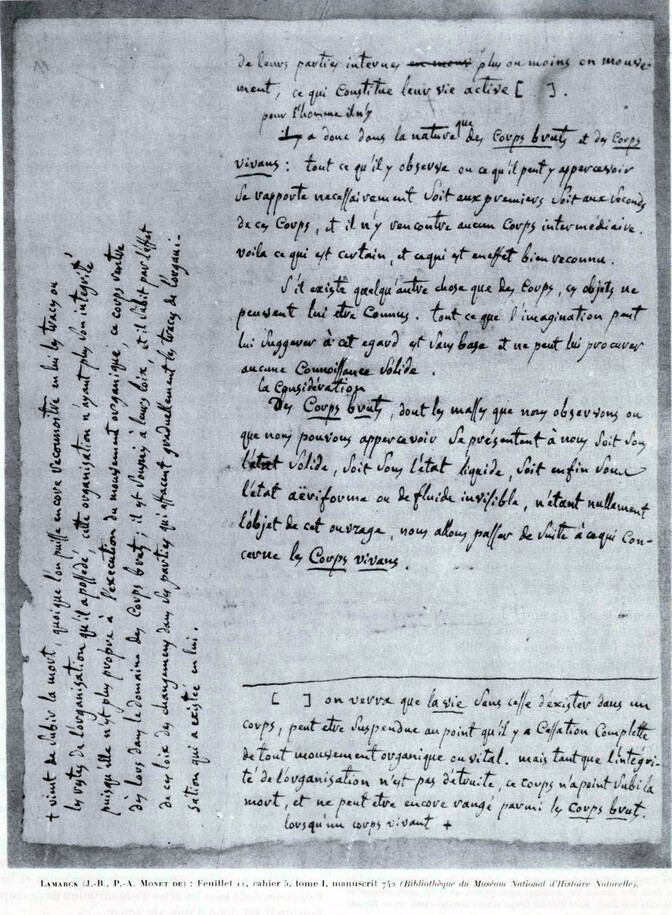 de leurs parties internes en mouv plus ou moins en mouve-
ment, ce qui constitue leur vie active [ . ] .
pour l'homme il n'y
il y a donc dans la nature que des Corps bruts et des Corps
vivans : tout ce qu'il y observe ou ce qu'il peut y appercevoir
se rapporte necessairement soit aux premiers soit aux seconds
de ces Corps, et il n'y rencontre aucun Corps intermédiaire.
voila ce qui est certain, et ce qui est en effet bien reconnu.
S'il existe quelqu'autre chose que des Corps, ces objets ne
peuvent lui etre Connus. tout ce que l'imagination peut
lui suggerer à cet egard est sans base et ne peut lui procurer
aucune Connoissance solide.
la Considération
Des Corps bruts, dont les masses que nous observons ou
que nous pouvons appercevoir se présentent à nous soit sous
l'état solide, soit sous l'état liquide, soit enfin sous
l'état aëriforme ou de fluide invisible, n'étant nullement
l'objet de cet ouvrage, nous allons passer de suite à ce qui con-
cerne les Corps vivans.
[ ] on verra que la vie sans cesse d'exister dans un
corps, peut etre suspendue au point qu'il y a Cessation Complette
de tout mouvement organique ou vital. mais tant que l'intégri-
té de l'organisation n'est pas détruite, ce corps n'a point subi la
mort, et ne peut etre encore rangé parmi les Corps brut.
lorsqu'un corps vivant +
+ vient de subir la mort, quoique l'on puisse encore reconnoitre en lui les traces ou
les restes de l'organisation qu'il a possédé, cette organisation n'ayant plus son intégrité
puisqu'elle n'est plus propre à l'execution du mouvement organique, ce corps rentre
dès lors dans le domaine des Corps bruts ; il est soumis à leurs loix, et il subit par l'effet
de ces loix des changemens dans ses parties qui effacent graduellement les traces de l'organi-
sation qui a existée en lui.
LAMARCK (J.-B., P.-A. MONET DE) : Feuillet 11, cahier 5, tome I, manuscrit 742 (Bibliothèque du Muséum National d'Histoire Naturelle).